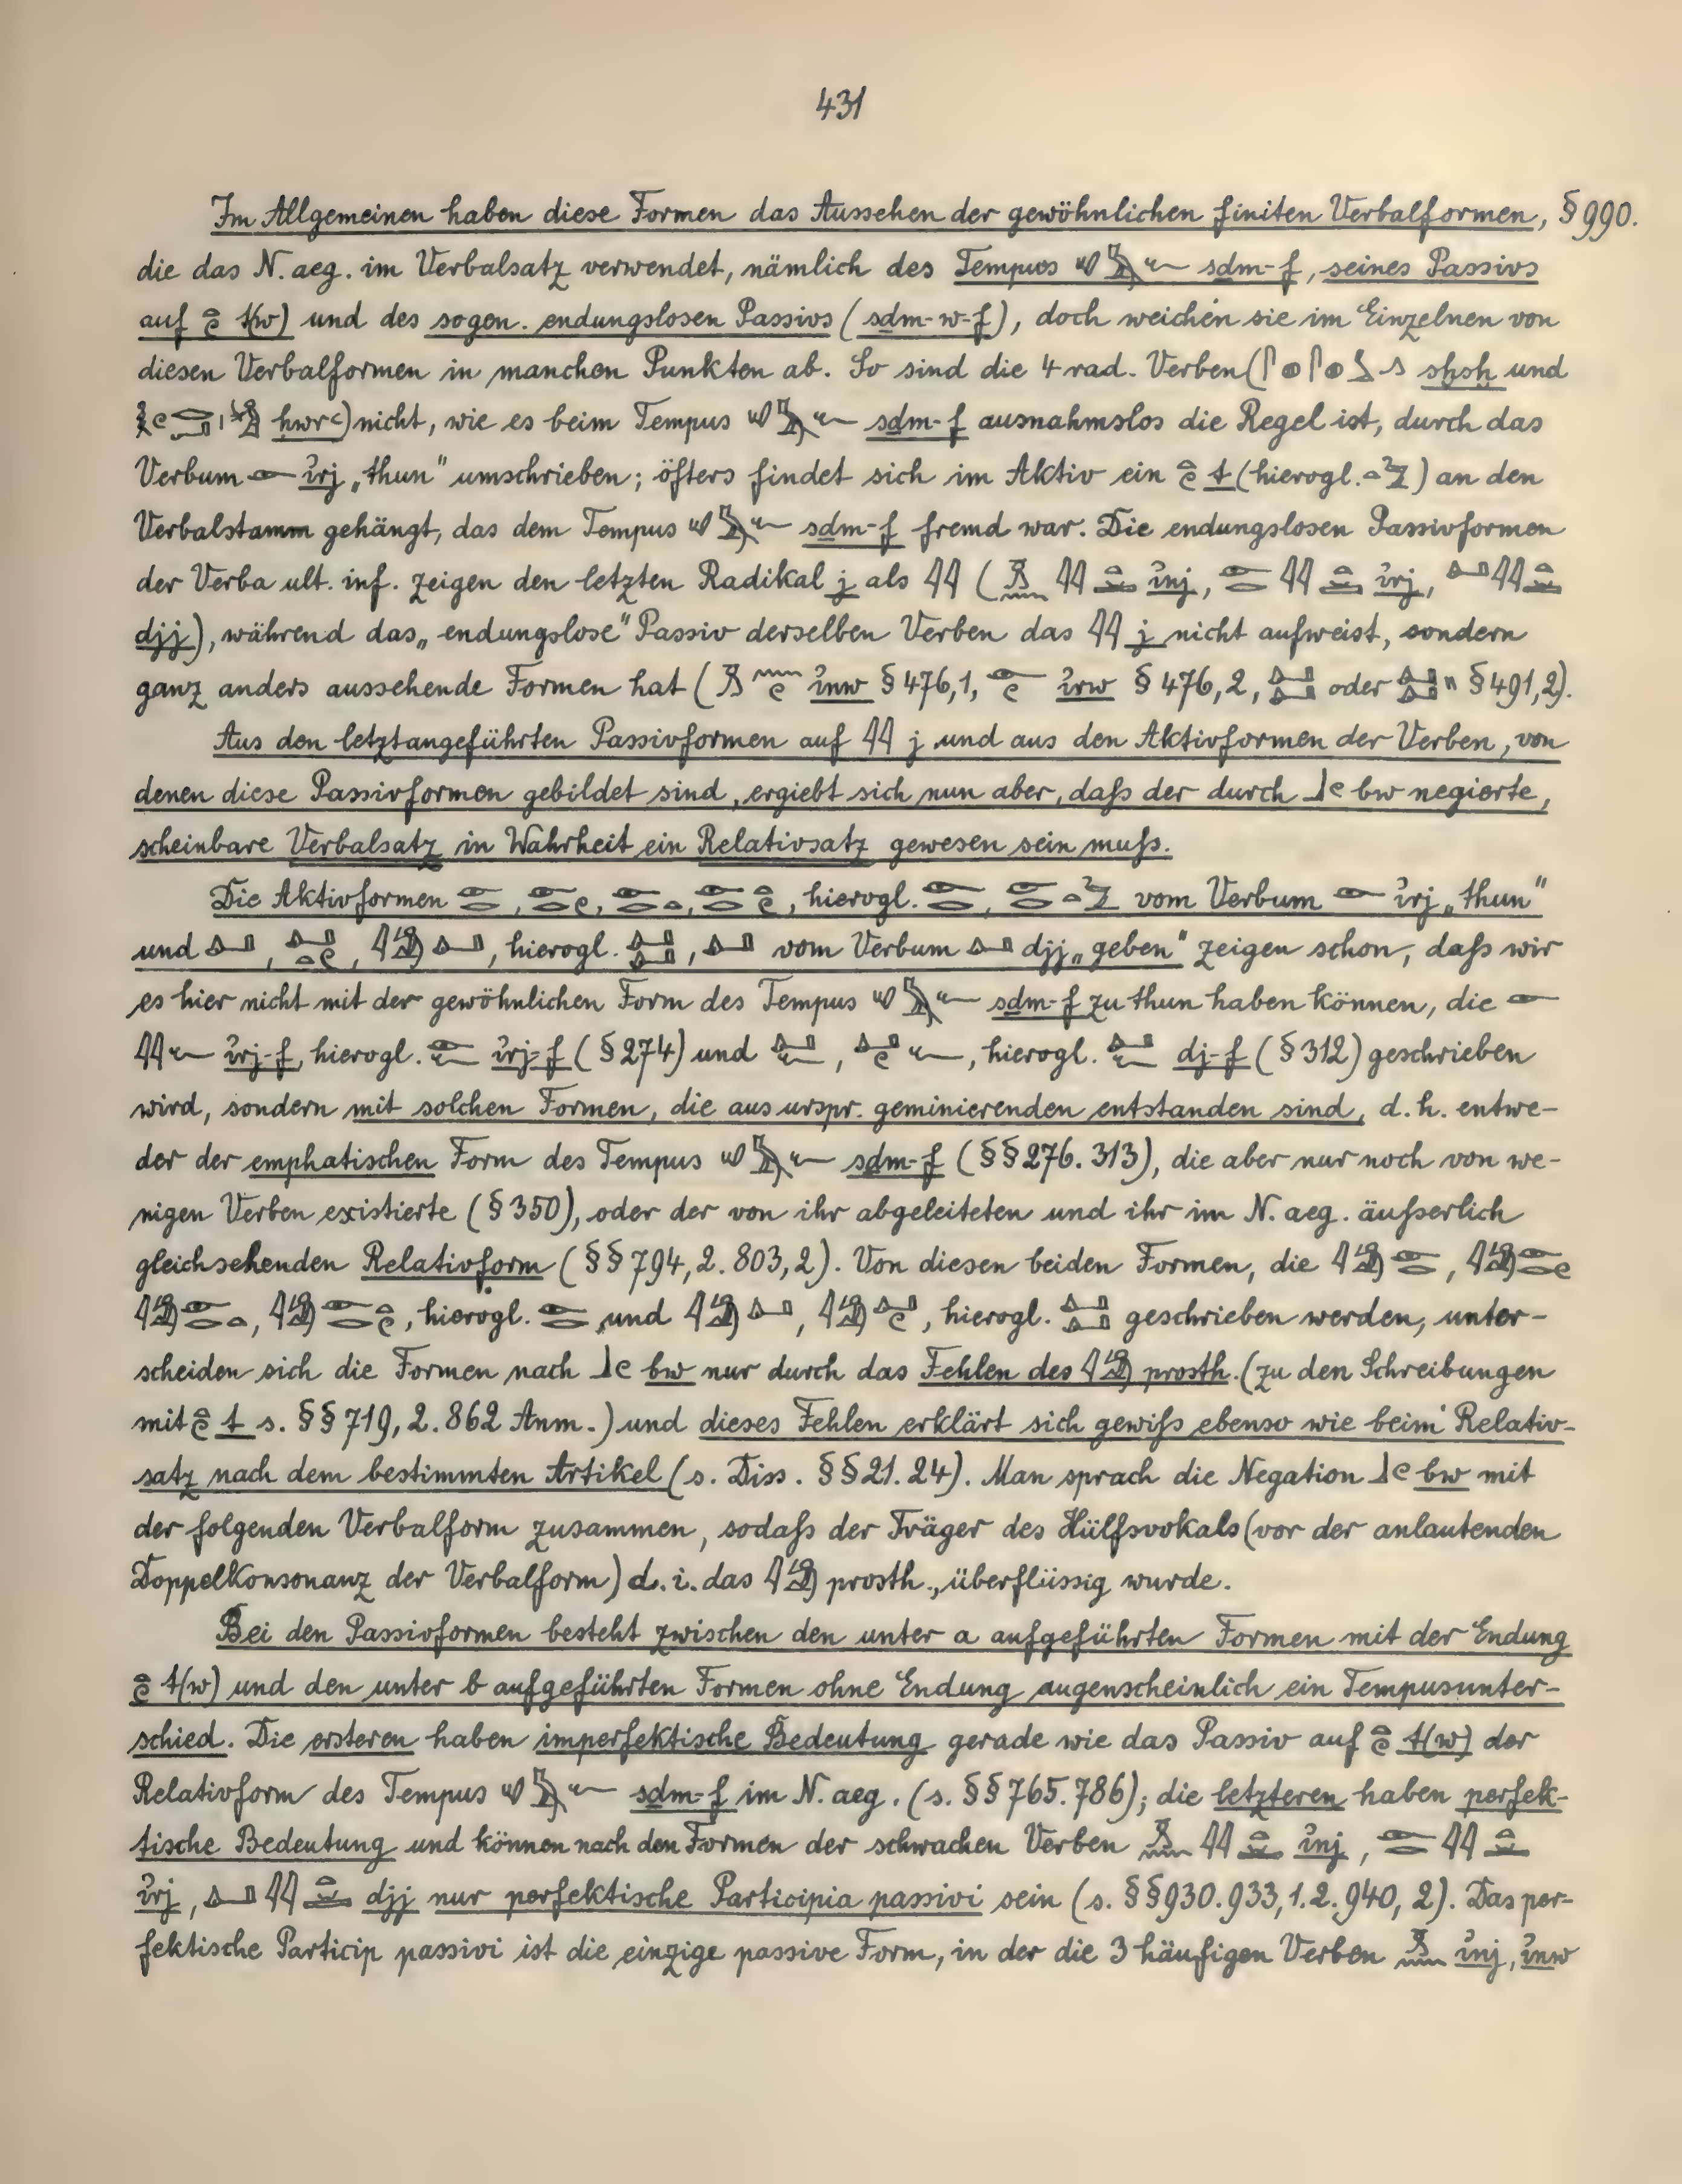 431
Im Allgemeinen haben diese Formen das Aussehen der gewöhnlichen finiten Verbalformen, § 990.
die das N. aeg. im Verbalsatz verwendet, nämlich des Tempus sdm-f, seines Passivs
auf t(w) und des sogen. endungslosen Passivs (sdm-w-f), doch weichen sie im Einzelnen von
diesen Verbalformen in manchen Punkten ab. So sind die 4 rad. Verben ( sḫsḫ und
hwrꜥ) nicht, wie es beim Tempus sdm-f ausnahmslos die Regel ist, durch das
Verbum ỉrj „thun" umschrieben; öfters findet sich im Aktiv ein t (hierogl. ) an den
Verbalstamm gehängt, das dem Tempus sdm-f fremd war. Die endungslosen Passivformen
der Verba ult. inf. zeigen den letzten Radikal j als 𓇌 ( ỉnj, ỉrj,
djj), während das „endungslose" Passiv derselben Verben das 𓇌 j nicht aufweist, sondern
ganz anders aussehende Formen hat ( ỉnw § 476,1, ỉrw § 476,2, oder § 491,2).
Aus den letztangeführten Passivformen auf 𓇌 j und aus den Aktivformen der Verben, von
denen diese Passivformen gebildet sind, ergiebt sich nun aber, daß der durch bw negierte,
scheinbare Verbalsatz in Wahrheit ein Relativsatz gewesen sein muß.
Die Aktivformen , , , , hierogl. , vom Verbum ỉrj „thun"
und , , , hierogl. , vom Verbum djj „geben" zeigen schon, daß wir
es hier nicht mit der gewöhnlichen Form des Tempus sdm-f zu thun haben können, die
ỉrj-f, hierogl. ỉrj-f (§ 274) und , , hierogl. dj-f (§ 312) geschrieben
wird, sondern mit solchen Formen, die aus urspr. geminierenden entstanden sind, d. h. entwe-
der der emphatischen Form des Tempus sdm-f (§§ 276. 313), die aber nur noch von we-
nigen Verben existierte (§ 350), oder der von ihr abgeleiteten und ihr im N. aeg. äußerlich
gleichsehenden Relativform (§§ 794, 2. 803, 2). Von diesen beiden Formen, die ,
, , hierogl. und , , hierogl. geschrieben werden, unter-
scheiden sich die Formen nach bw nur durch das Fehlen des prosth. (zu den Schreibungen
mit t s. §§ 719, 2. 862 Anm.) und dieses Fehlen erklärt sich gewiß ebenso wie beim Relativ-
satz nach dem bestimmten Artikel (s. Diss. §§ 21. 24). Man sprach die Negation bw mit
der folgenden Verbalform zusammen, sodaß der Träger des Hülfsvokals (vor der anlautenden
Doppelkonsonanz der Verbalform) d. i. das prosth., überflüssig wurde.
Bei den Passivformen besteht zwischen den unter a aufgeführten Formen mit der Endung
t(w) und den unter b aufgeführten Formen ohne Endung augenscheinlich ein Tempusunter-
schied. Die ersteren haben imperfektische Bedeutung gerade wie das Passiv auf t(w) der
Relativform des Tempus sdm-f im N. aeg. (s. §§ 765. 786); die letzteren haben perfek-
tische Bedeutung und können nach den Formen der schwachen Verben ỉnj,
ỉrj, djj nur perfektische Participia passivi sein (s. §§ 930. 933, 1. 2. 940, 2). Das per-
fektische Particip passivi ist die einzige passive Form, in der die 3 häufigen Verben ỉnj, ỉnw